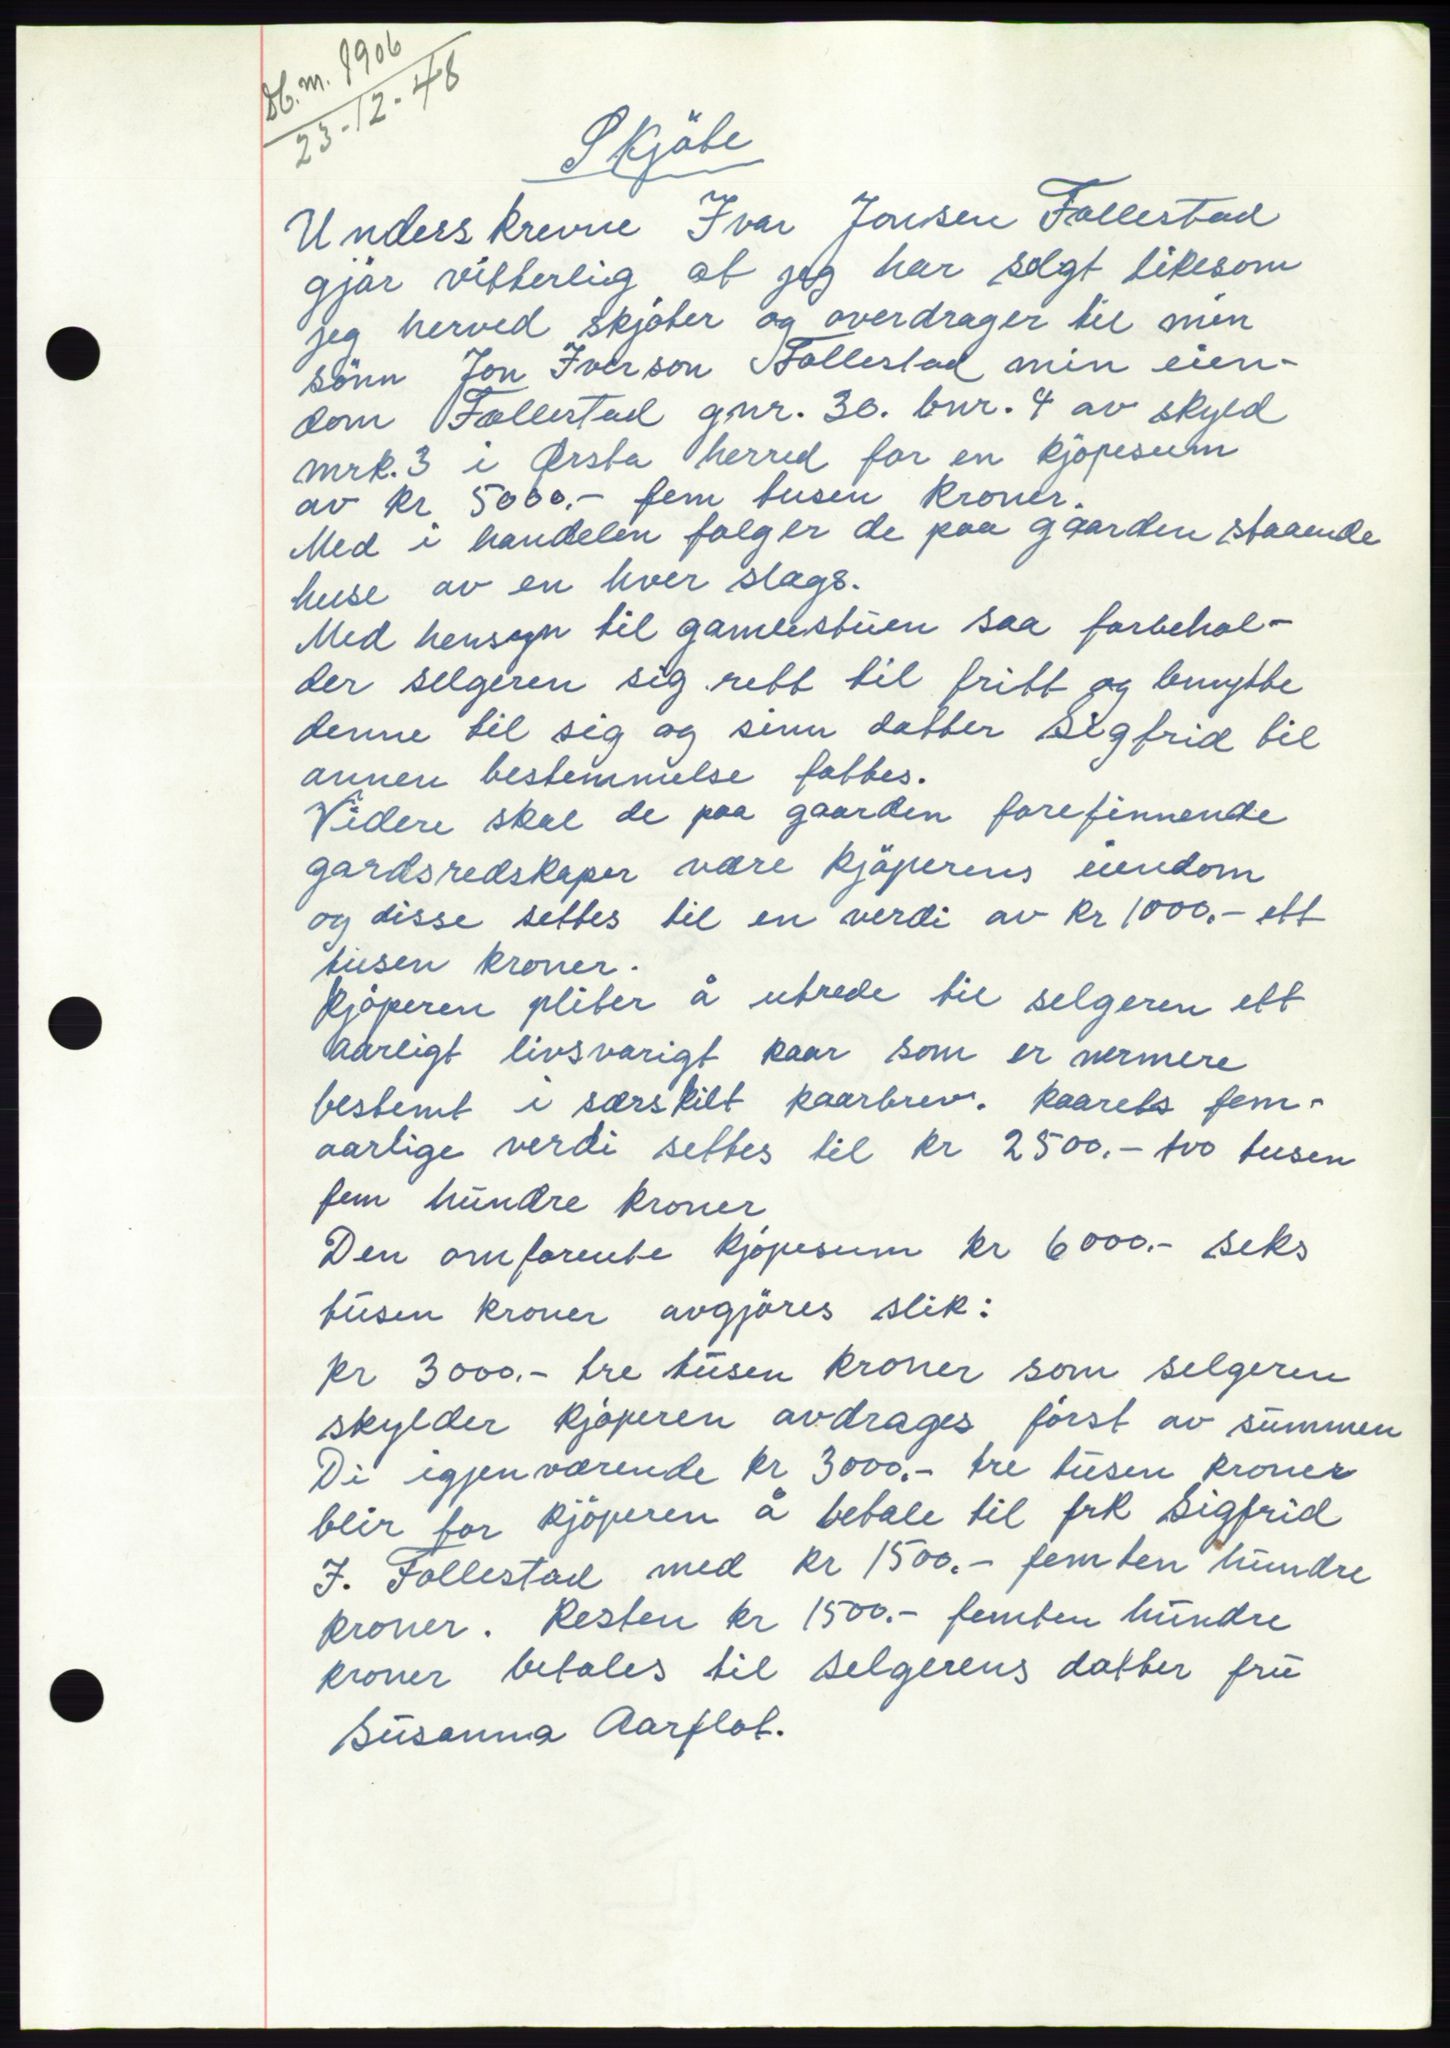 Db. m. 1906
23-12-48
Skjöte
Underskrevne Ivar Jonsen Follestad
gjör vitterlig at jeg har solgt likesom
jeg herved skjöter og overdrager til min
sönn Jon Iverson Follestad min eien-
dom Follestad g,nr. 30. bnr. 4 av skyld
mrk. 3 i Ørsta herred for en kjöpesum
av kr 5000.- fem tusen kroner.
Med i handelen folger de paa ggarden staaende
huse av en hver slags.
Med hensyn til gamlestuen saa forbehol-
der selgeren sig rett til fritt og benytte
denne til sig og sinn datter Sigfrid til
annen bestemmelse fattes.
Videre skal de paa gaarden forefinnende
gardsredskaper være kjöperens eiendom
og disse settes til en verdi av kr 1000.- ett
tusen kroner.
Kjöperen pliter å utrede til selgeren ett
aarligt livsvarigt kaar som er nermere
bestemt i særskilt kaarbrev. Kaarets fem-
aarlige verdi settes til kr 2500.- tvo tusen
fem hundre kroner
Den omforente kjöpesum kr 6000.- seks
tusen kroner avgjöres slik:
kr 3000.- tre tusen kroner som selgeren
skylder kjöperen avdrages först av summen
Di igjenværende kr 3000.- tre tusen kroner
blir for kjöperen å betale til frk Sigfrid
I. Follestad med kr 1500.- femten hundre
kroner. Resten kr 1500.- femten hundre
kroner betales til selgerens datter fru
Susanna Aarflot.